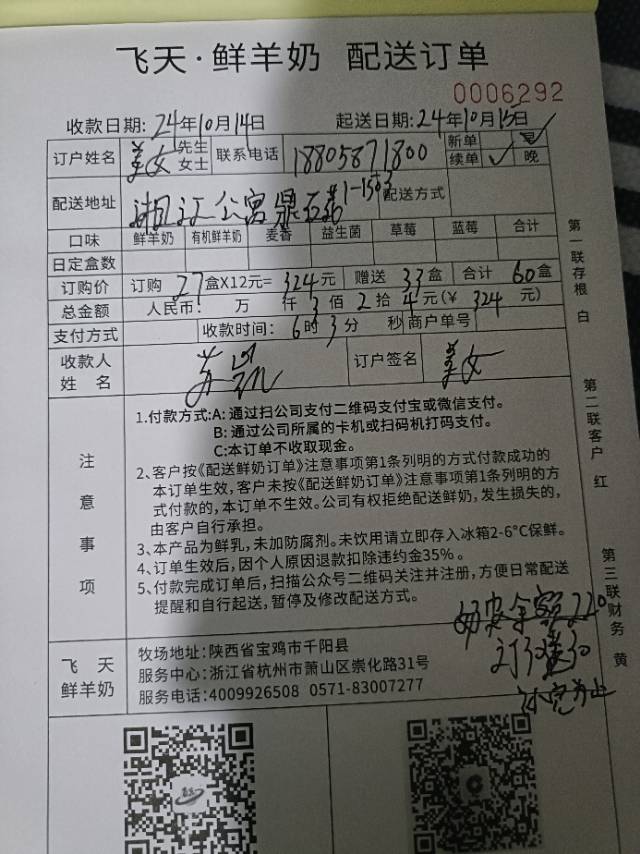 飞天·鲜羊奶 配送订单
0006292
收款日期: 24年10月14日 起送日期: 24年10月15日
订户姓名 姜女 先生 女士 联系电话 18805871800 新单 早 续单 ✓ 晚 ✓
配送地址 湘江公寓 1-1503 配送方式
口味 鲜羊奶 有机鲜羊奶 麦香 益生菌 草莓 蓝莓 合计
日定盒数
订购价 订购 27盒X12元=324元 赠送 33盒 合计 60盒
总金额 人民币: 万 仟 3佰 2拾 4元(¥ 324 元)
支付方式 收款时间: 6时3分 秒 商户单号
收款人 姓名 苏凯 订户签名 姜女
注意事项
1.付款方式:A: 通过扫公司支付二维码支付宝或微信支付。
B: 通过公司所属的卡机或扫码机打码支付。
C:本订单不收取现金。
2、客户按《配送鲜奶订单》注意事项第1条列明的方式付款成功的
本订单生效,客户未按《配送鲜奶订单》注意事项第1条列明的方
式付款的,本订单不生效。公司有权拒绝配送鲜奶,发生损失的,
由客户自行承担。
3、本产品为鲜乳，未加防腐剂。未饮用请立即存入冰箱2-6°C保鲜。
4、订单生效后,因个人原因退款扣除违约金35%。
5、付款完成订单后,扫描公众号二维码关注并注册,方便日常配送
提醒和自行起送,暂停及修改配送方式。
飞天 鲜羊奶
牧场地址:陕西省宝鸡市千阳县
服务中心:浙江省杭州市萧山区崇化路31号
服务电话:4009926508 0571-83007277
第一联存根 白
第二联客户 红
第三联财务 黄